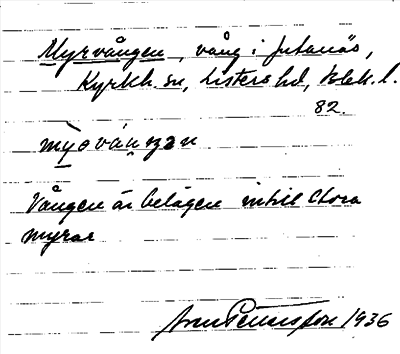 Myrvången, vång i Jutanäs,
Kyrkh. sn, Listers hd, Blek. l.
82.
myováŋgən
Vången är belägen intill Stora
myrar
Pettersson 1936